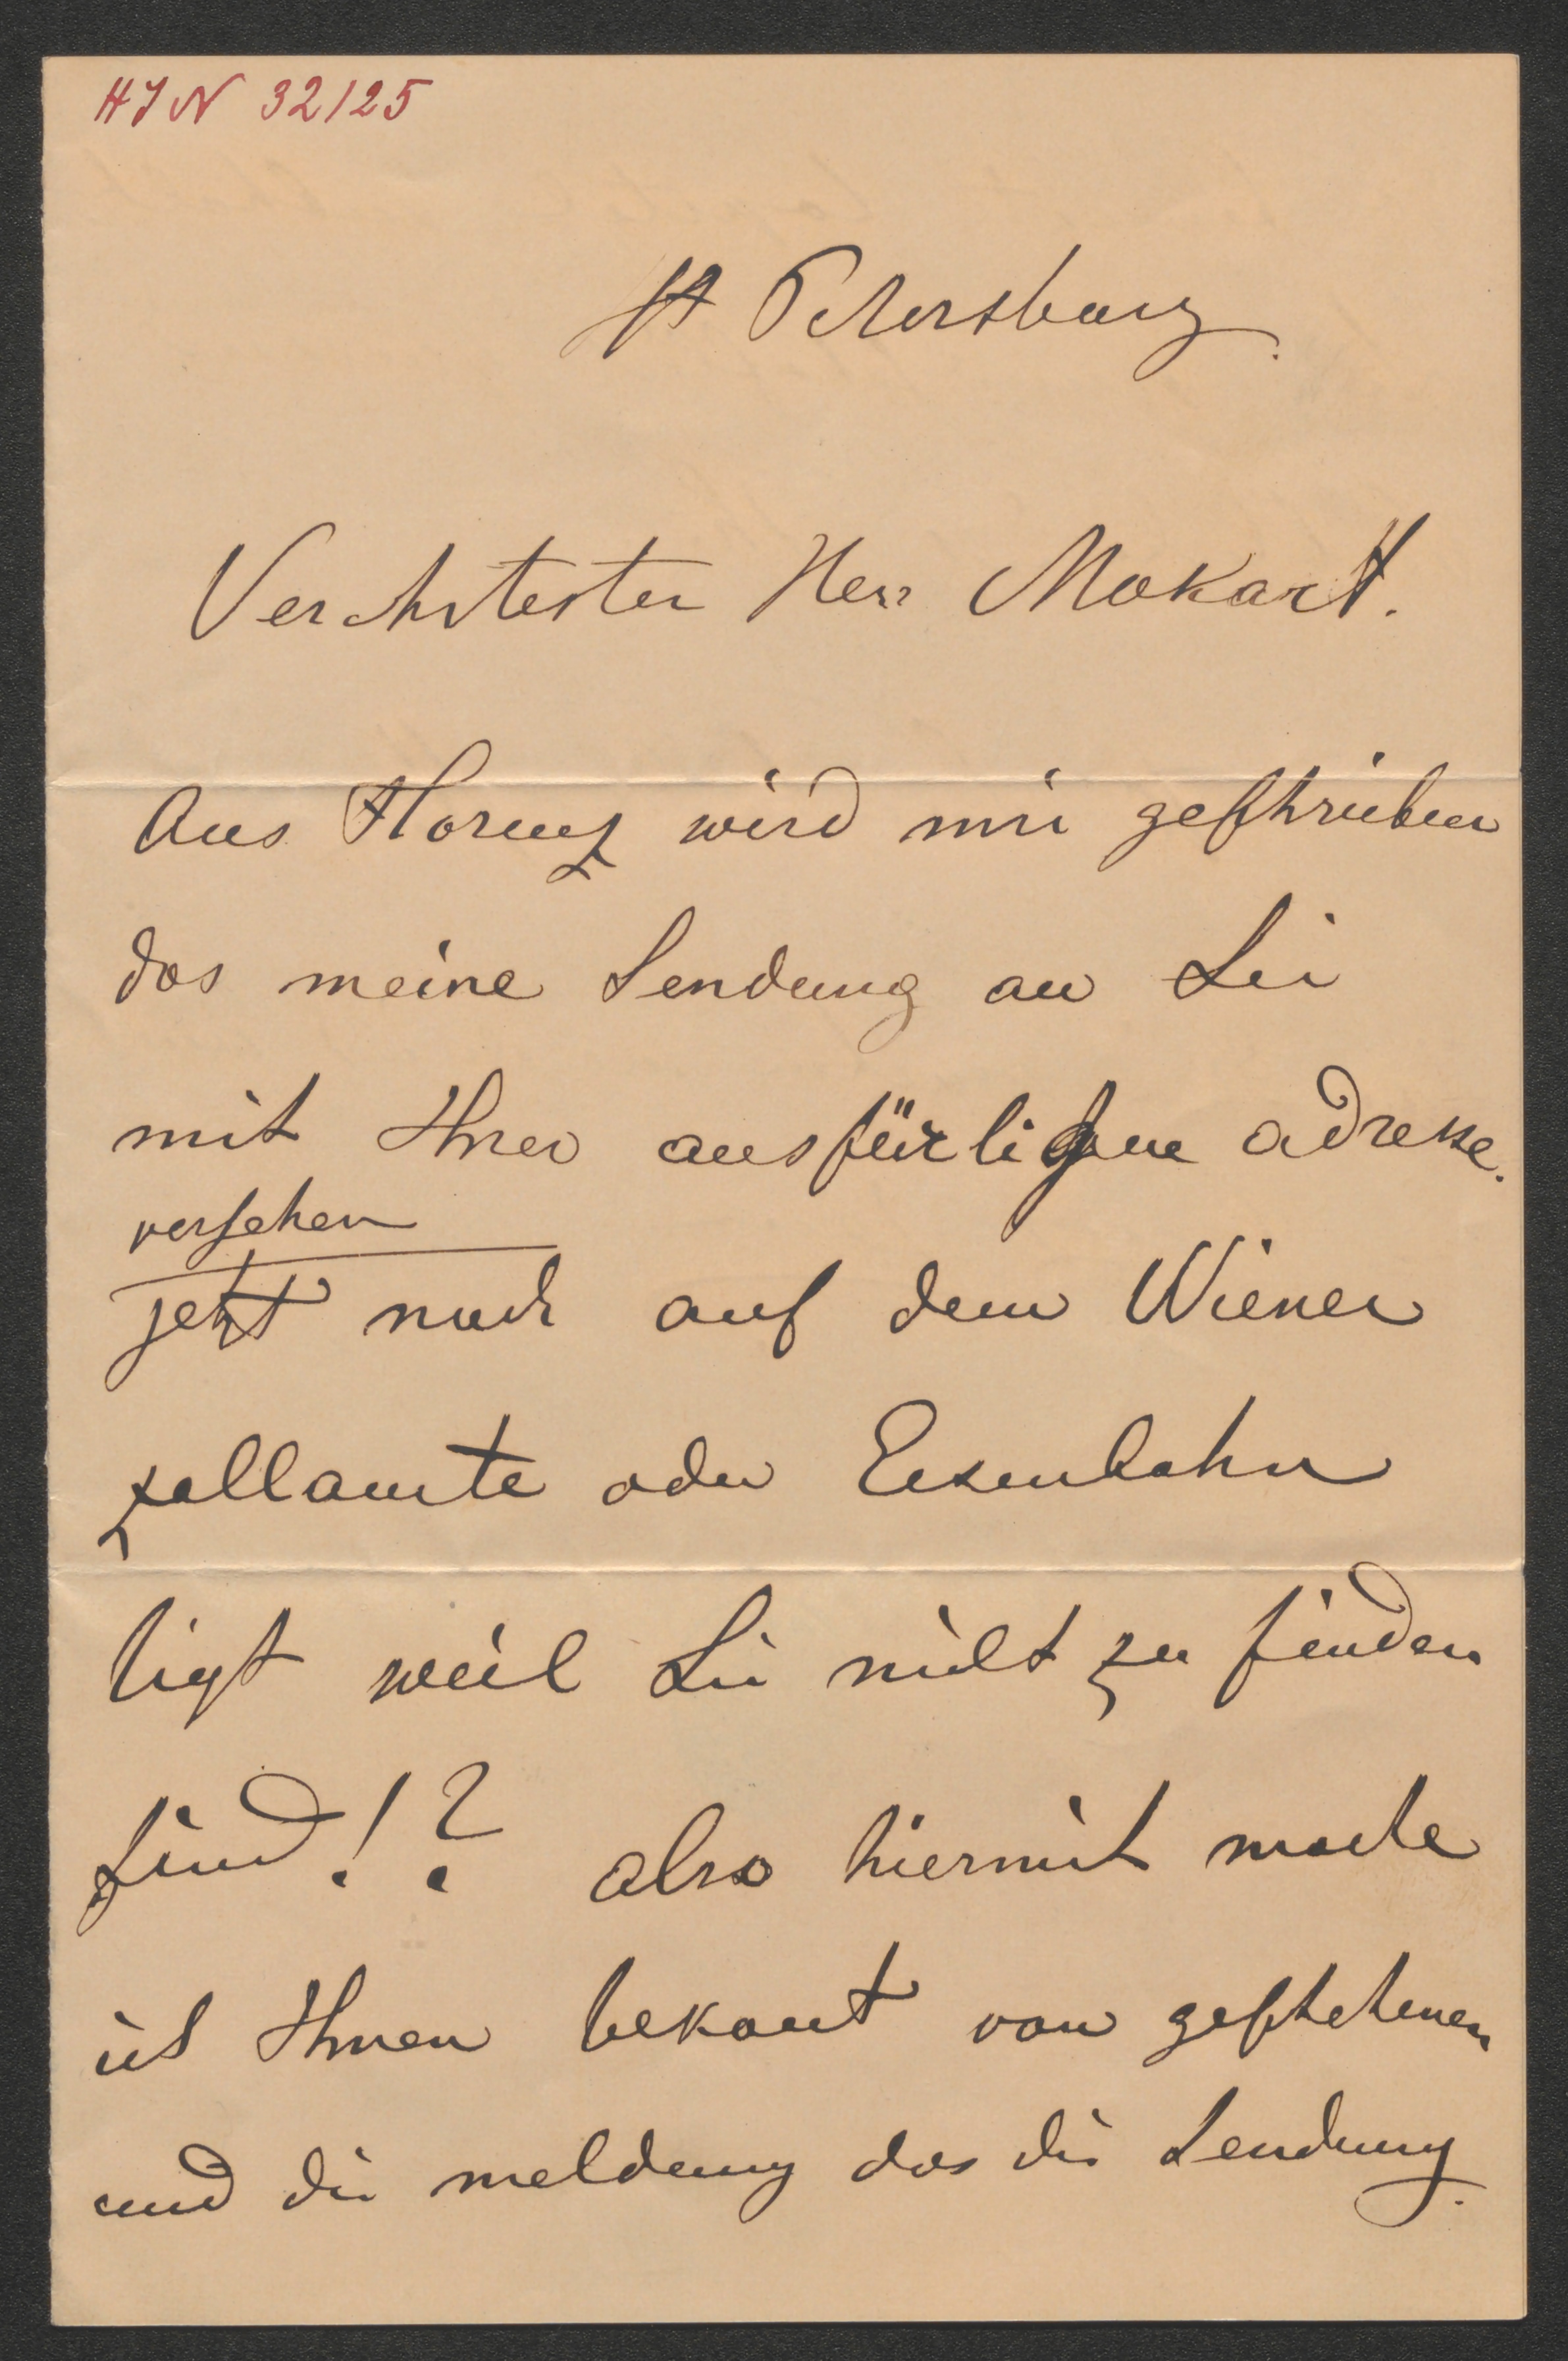 HIN 32125
St Petersburg.
Verehrtester Herr Mokart.
Aus Florenz wird mir geschrieben
das meine Sendung an Sie
mit Ihrer ausfürlichen adresse.
versehen
jetzt noch auf dem Wiener
zollamte oder Eisenbahn
ligt weil Sie nicht zu finden
sind!? also hiermit mache
ich Ihnen bekant von geschehenen
und die meldung das die Sendung.